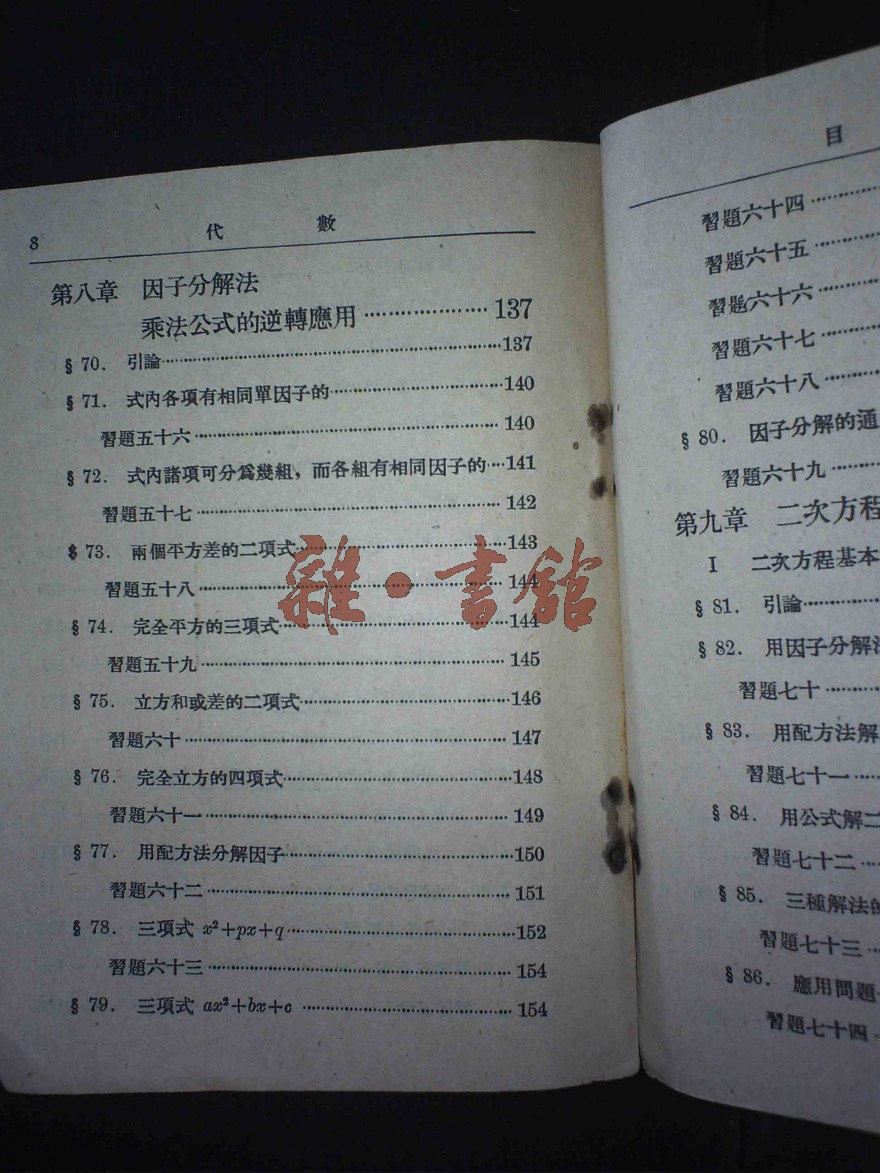 8 代 數
第八章 因子分解法
乘法公式的逆轉應用………………137
§ 70. 引論………………137
§ 71. 式內各項有相同單因子的………………140
習題五十六………………140
§ 72. 式內諸項可分爲幾組，而各組有相同因子的…141
習題五十七………………142
§ 73. 兩個平方差的二項式………………143
習題五十八………………144
§ 74. 完全平方的三項式………………144
習題五十九………………145
§ 75. 立方和或差的二項式………………146
習題六十………………147
§ 76. 完全立方的四項式………………148
習題六十一………………149
§ 77. 用配方法分解因子………………150
習題六十二………………151
§ 78. 三項式 x²+px+q………………152
習題六十三………………154
§ 79. 三項式 ax²+bx+c………………154
雜·書館
目
習題六十四………
習題六十五………
習題六十六………
習題六十七………
習題六十八………
§ 80. 因子分解的通
習題六十九………
第九章 二次方程
I 二次方程基本
§ 81. 引論………
§ 82. 用因子分解
習題七十………
§ 83. 用配方法解
習題七十一………
§ 84. 用公式解二
習題七十二………
§ 85. 三種解法的
習題七十三………
§ 86. 應用問題
習題七十四